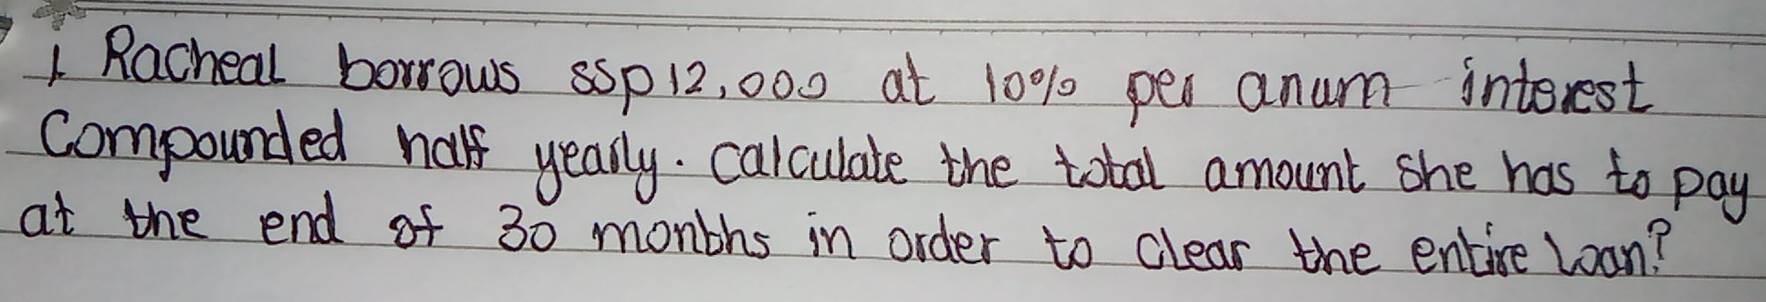 1 Racheal borrows ssp 12,000 at 10% per anum interest
Compounded half yearly. Calculate the total amount she has to pay
at the end of 30 months in order to clear the entire loan?